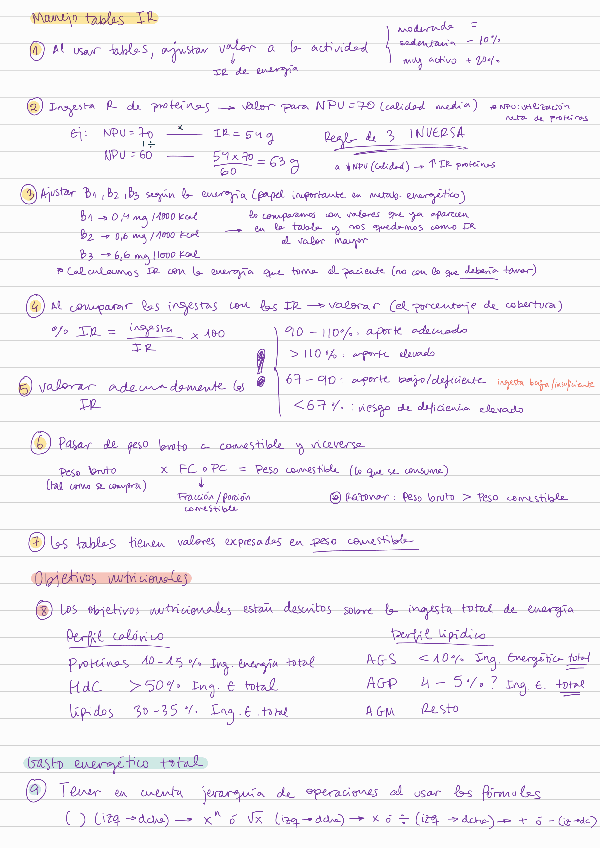 Manejo tablas IR
① Al usar tablas, ajustar valor a la actividad
↓ IR de energía
moderada =
sedentaria - 10%
muy activo + 20%
② Ingesta R de proteínas → valor para NPU = 70 (calidad media) * NPU: utilización neta de proteínas
Ej: NPU = 70 — x — IR = 54 g
Regla de 3 INVERSA
NPU = 60 — 54 x 70 / 60 = 63 g
a ↓ NPU (calidad) → ↑ IR proteínas
③ Ajustar B1, B2, B3 según la energía (papel importante en metab. energético)
B1 → 0,4 mg/1000 Kcal
B2 → 0,6 mg/1000 Kcal
B3 → 6,6 mg/1000 Kcal
→ lo comparamos con valores que ya aparecen
en la tabla y nos quedamos como IR
el valor mayor
* Calculamos IR con la energía que toma el paciente (no con lo que debería tomar)
④ Al comparar las ingestas con las IR → valorar (el porcentaje de cobertura)
% IR = ingesta / IR x 100
90 - 110% · aporte adecuado
> 110% · aporte elevado
67 - 90 · aporte bajo/deficiente ingesta baja/insuficiente
< 67% : riesgo de deficiencia elevado
⑤ Valorar adecuadamente las
IR
⑥ Pasar de peso bruto a comestible y viceversa
Peso bruto x FC o PC = Peso comestible (lo que se consume)
(tal como se compra)
↓ Fracción/porción
comestible
Razonar: Peso bruto > Peso comestible
⑦ Las tablas tienen valores expresados en peso comestible
Objetivos nutricionales
⑧ Los objetivos nutricionales están descritos sobre la ingesta total de energía
Perfil calórico
Proteínas 10 - 15% Ing. energía total
HdC > 50% Ing. E total
Lípidos 30 - 35% Ing. E. total
Perfil lipídico
AGS < 10% Ing. Energética total
AGP 4 - 5%? Ing E. total
AGM Resto
Gasto energético total
⑨ Tener en cuenta jerarquía de operaciones al usar las fórmulas
( ) (izq → dcha) → xⁿ ó √x (izq → dcha) → x ó ÷ (izq → dcha) → + ó - (iz → dc)